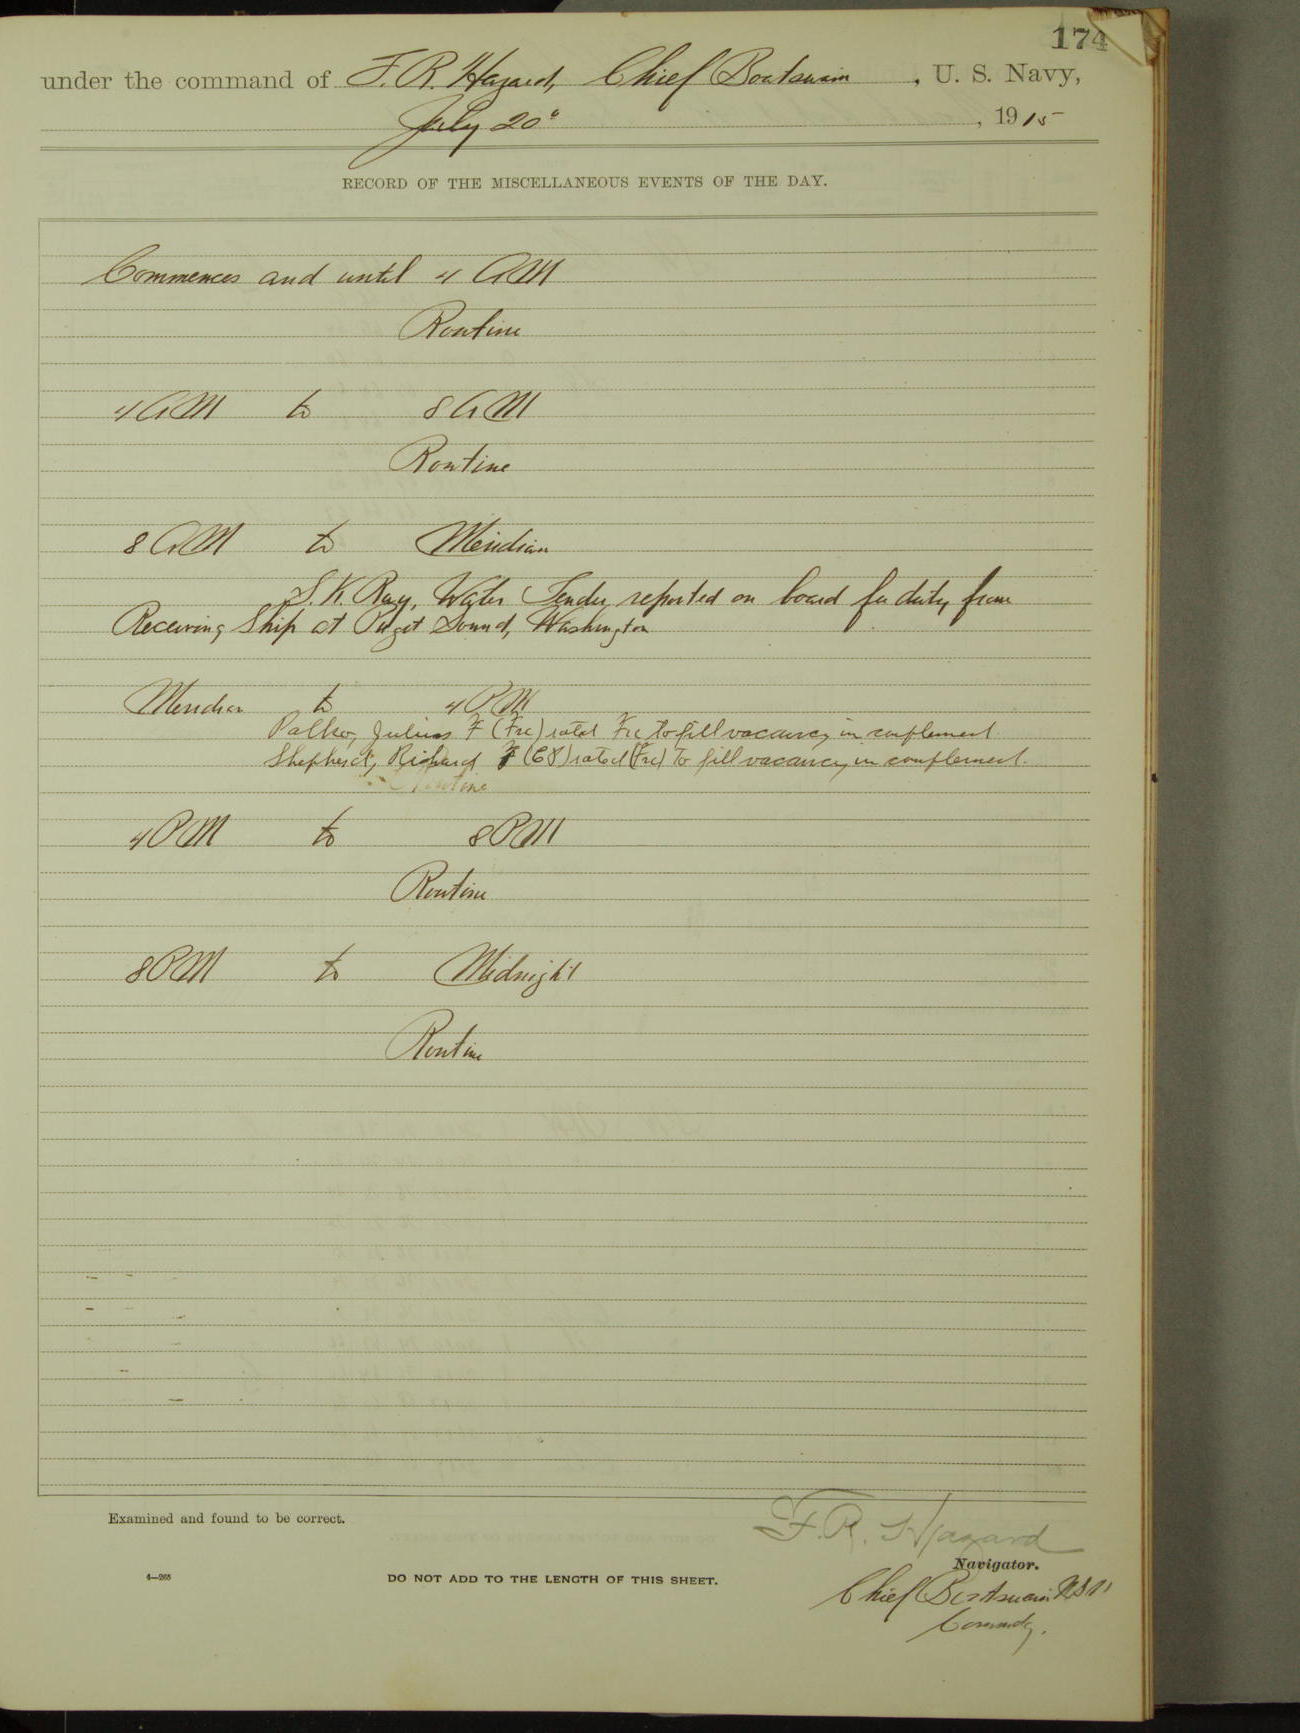 174
under the command of F. R. Hazard, Chief Boatswain , U. S. Navy,
July 20" , 1915
RECORD OF THE MISCELLANEOUS EVENTS OF THE DAY.
Commences and until 4 AM
Routine
4 AM to 8 AM
Routine
8 AM to Meridian
S. K. Ray, Water Tender reported on board for duty from
Receiving Ship at Puget Sound, Washington
Meridian to 4 PM
Palko, Julius F (F2c) rated F1c to fill vacancy in complement
Shepherd, Richard (CP) rated (F2c) to fill vacancy in complement.
Routine
4 PM to 8 PM
Routine
8 PM to Midnight
Routine
Examined and found to be correct.
F. R. Hazard
Navigator.
4—265
DO NOT ADD TO THE LENGTH OF THIS SHEET.
Chief Boatswain USN
Commdg.